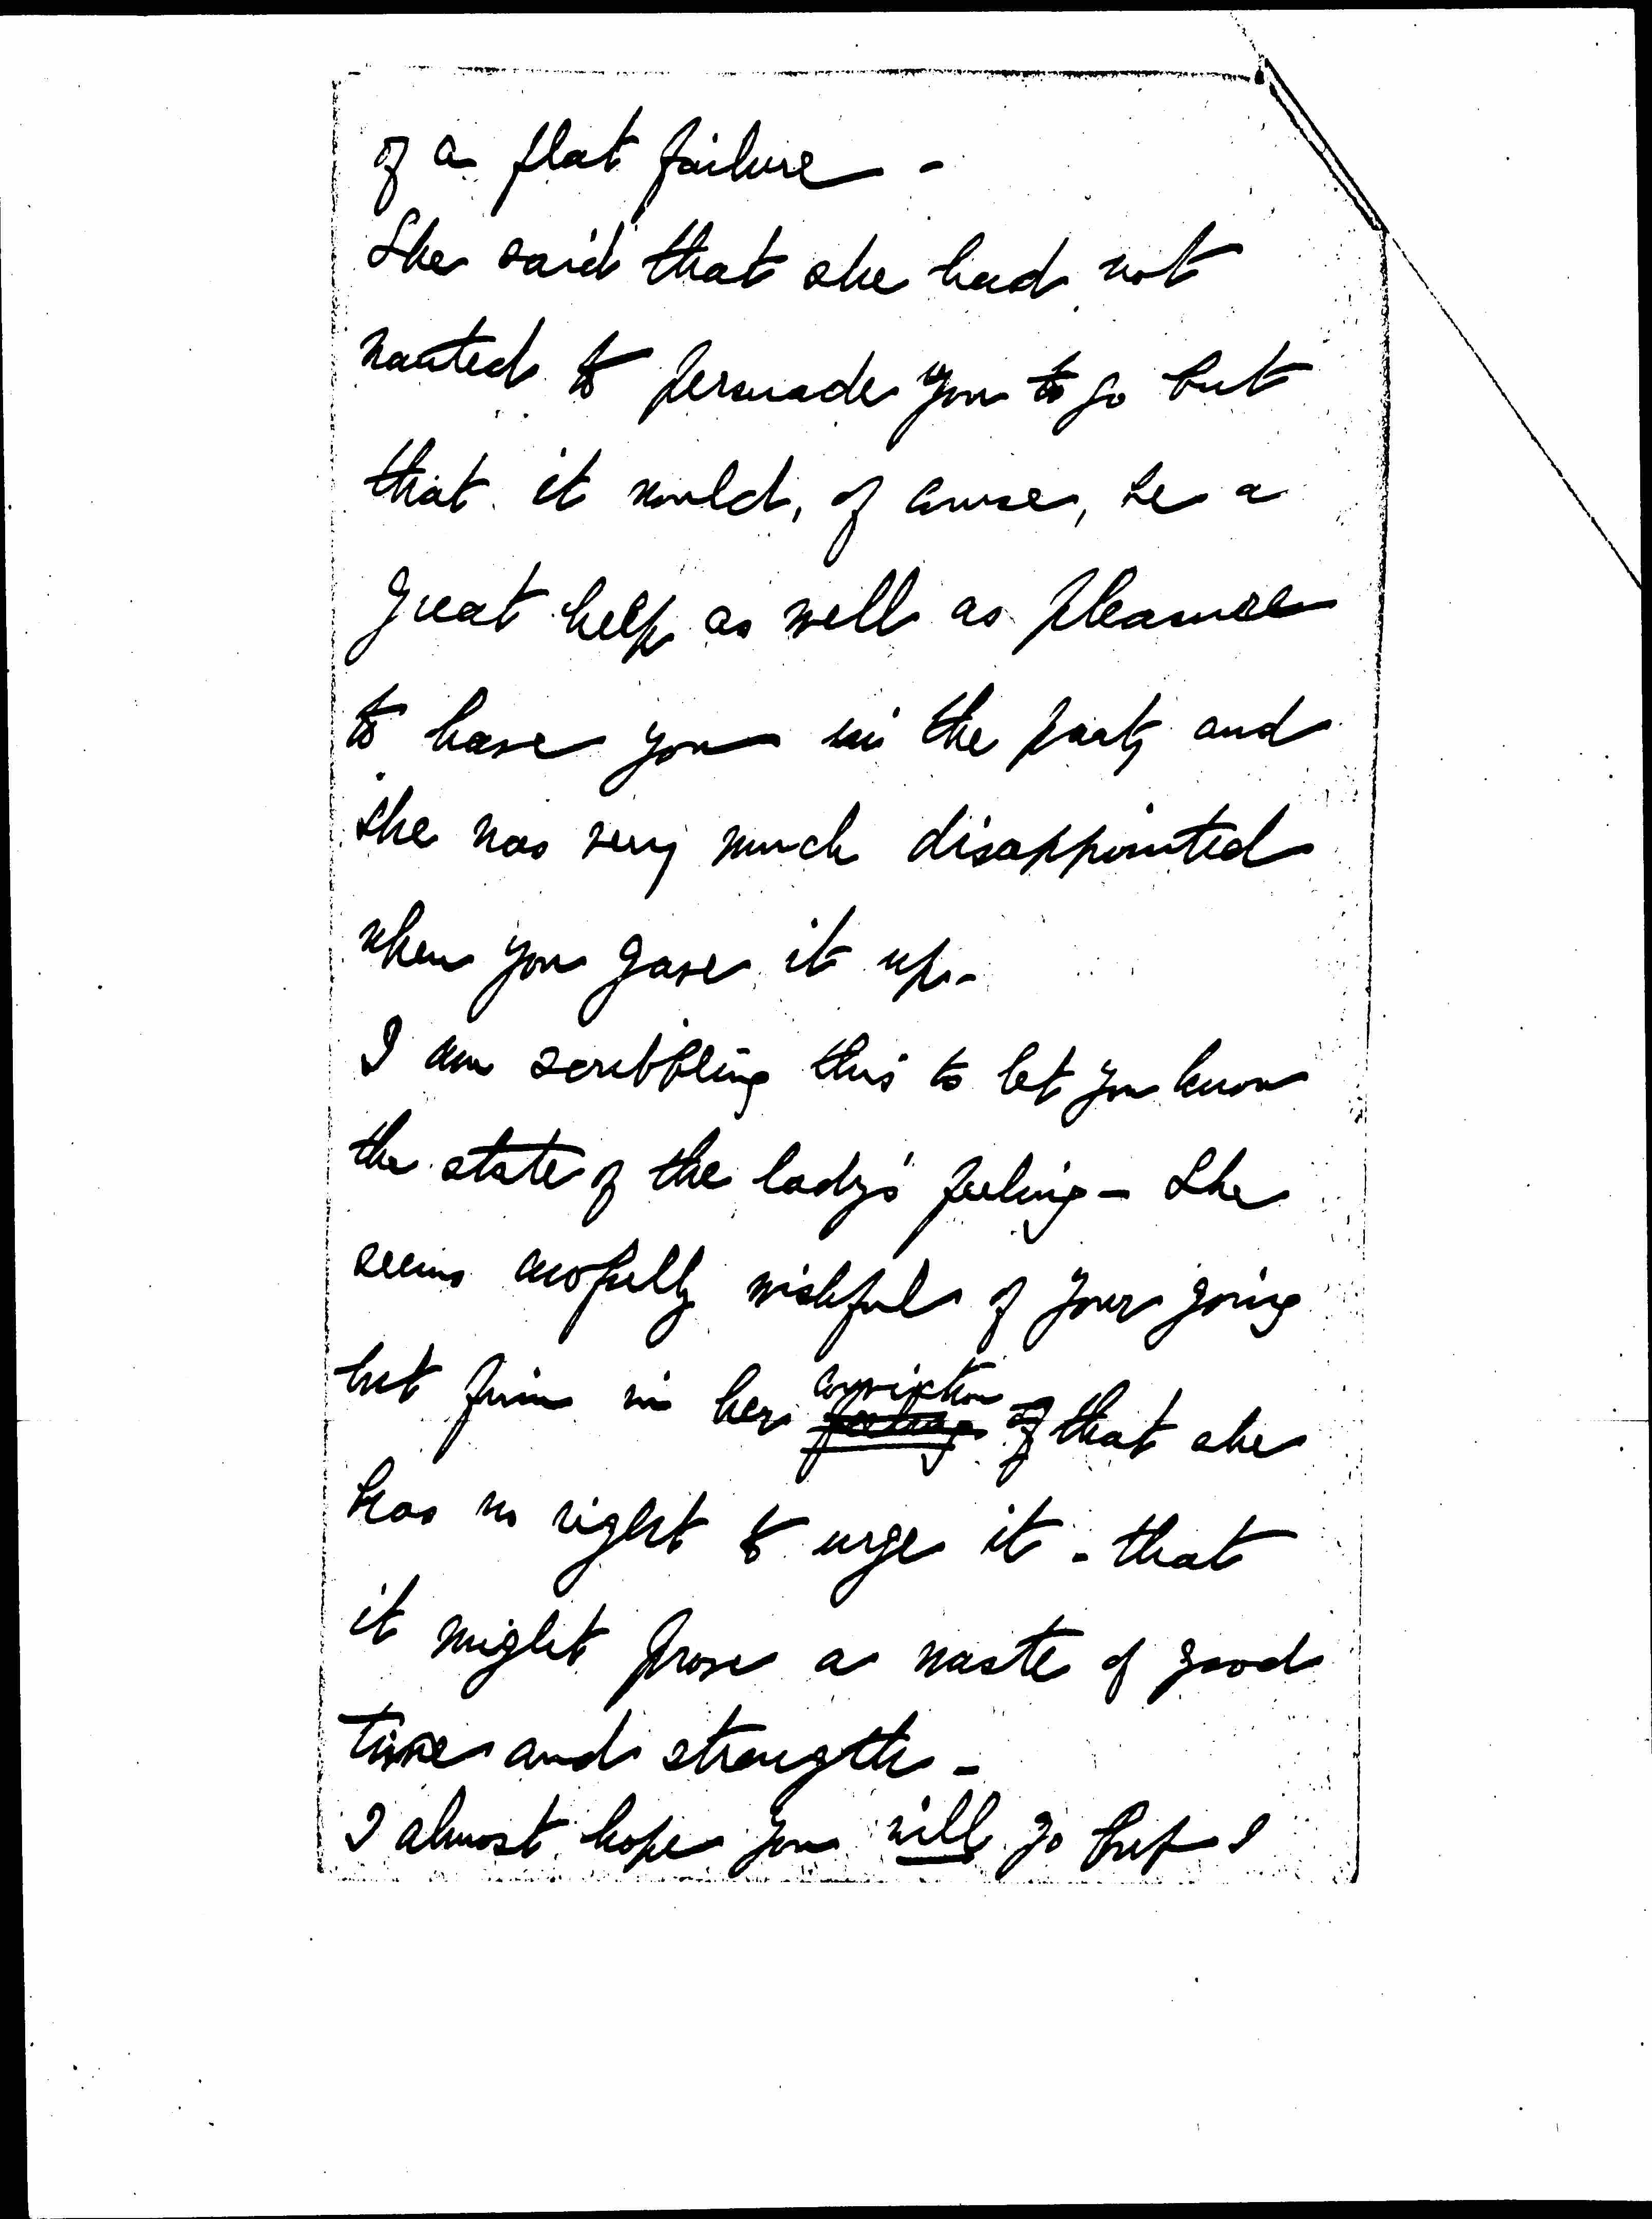 of a flat failure -
She said that she had not
wanted to persuade you to go but
that it would, of course, be a
great help as well as pleasure
to have you in the party and
she was very much disappointed
when you gave it up -
I am scribbling this to let you know
the state of the lady's feeling - She
seems awfully wishful of your going
but firm in her feeling conviction of that she
has no right to urge it - that
it might prove a waste of good
time and strength -
I almost hope you will go but I